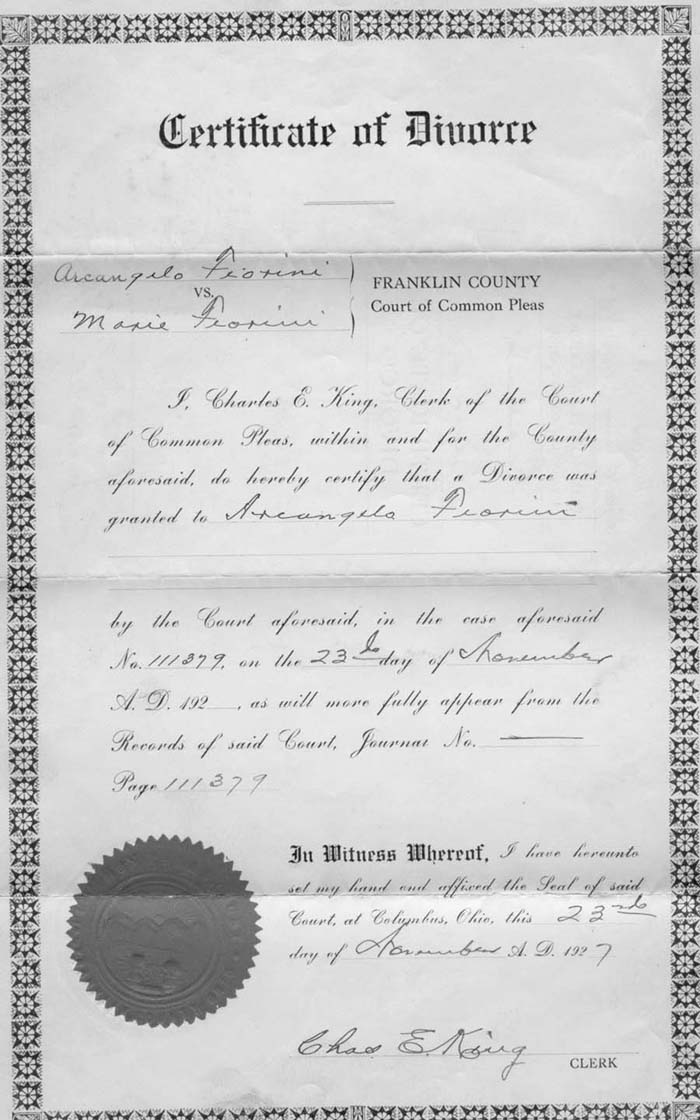 Certificate of Divorce
Arcangelo Fiorini
VS.
Marie Fiorini
FRANKLIN COUNTY
Court of Common Pleas
I, Charles E. King, Clerk of the Court
of Common Pleas, within and for the County
aforesaid, do hereby certify that a Divorce was
granted to Arcangelo Fiorini
by the Court aforesaid, in the case aforesaid
No. 111379, on the 23d day of November
A. D. 192__, as will more fully appear from the
Records of said Court, Journal No. —
Page 111379
In Witness Whereof, I have hereunto
set my hand and affixed the Seal of said
Court, at Columbus, Ohio, this 23rd
day of November A. D. 1927
Chas. E. King
CLERK